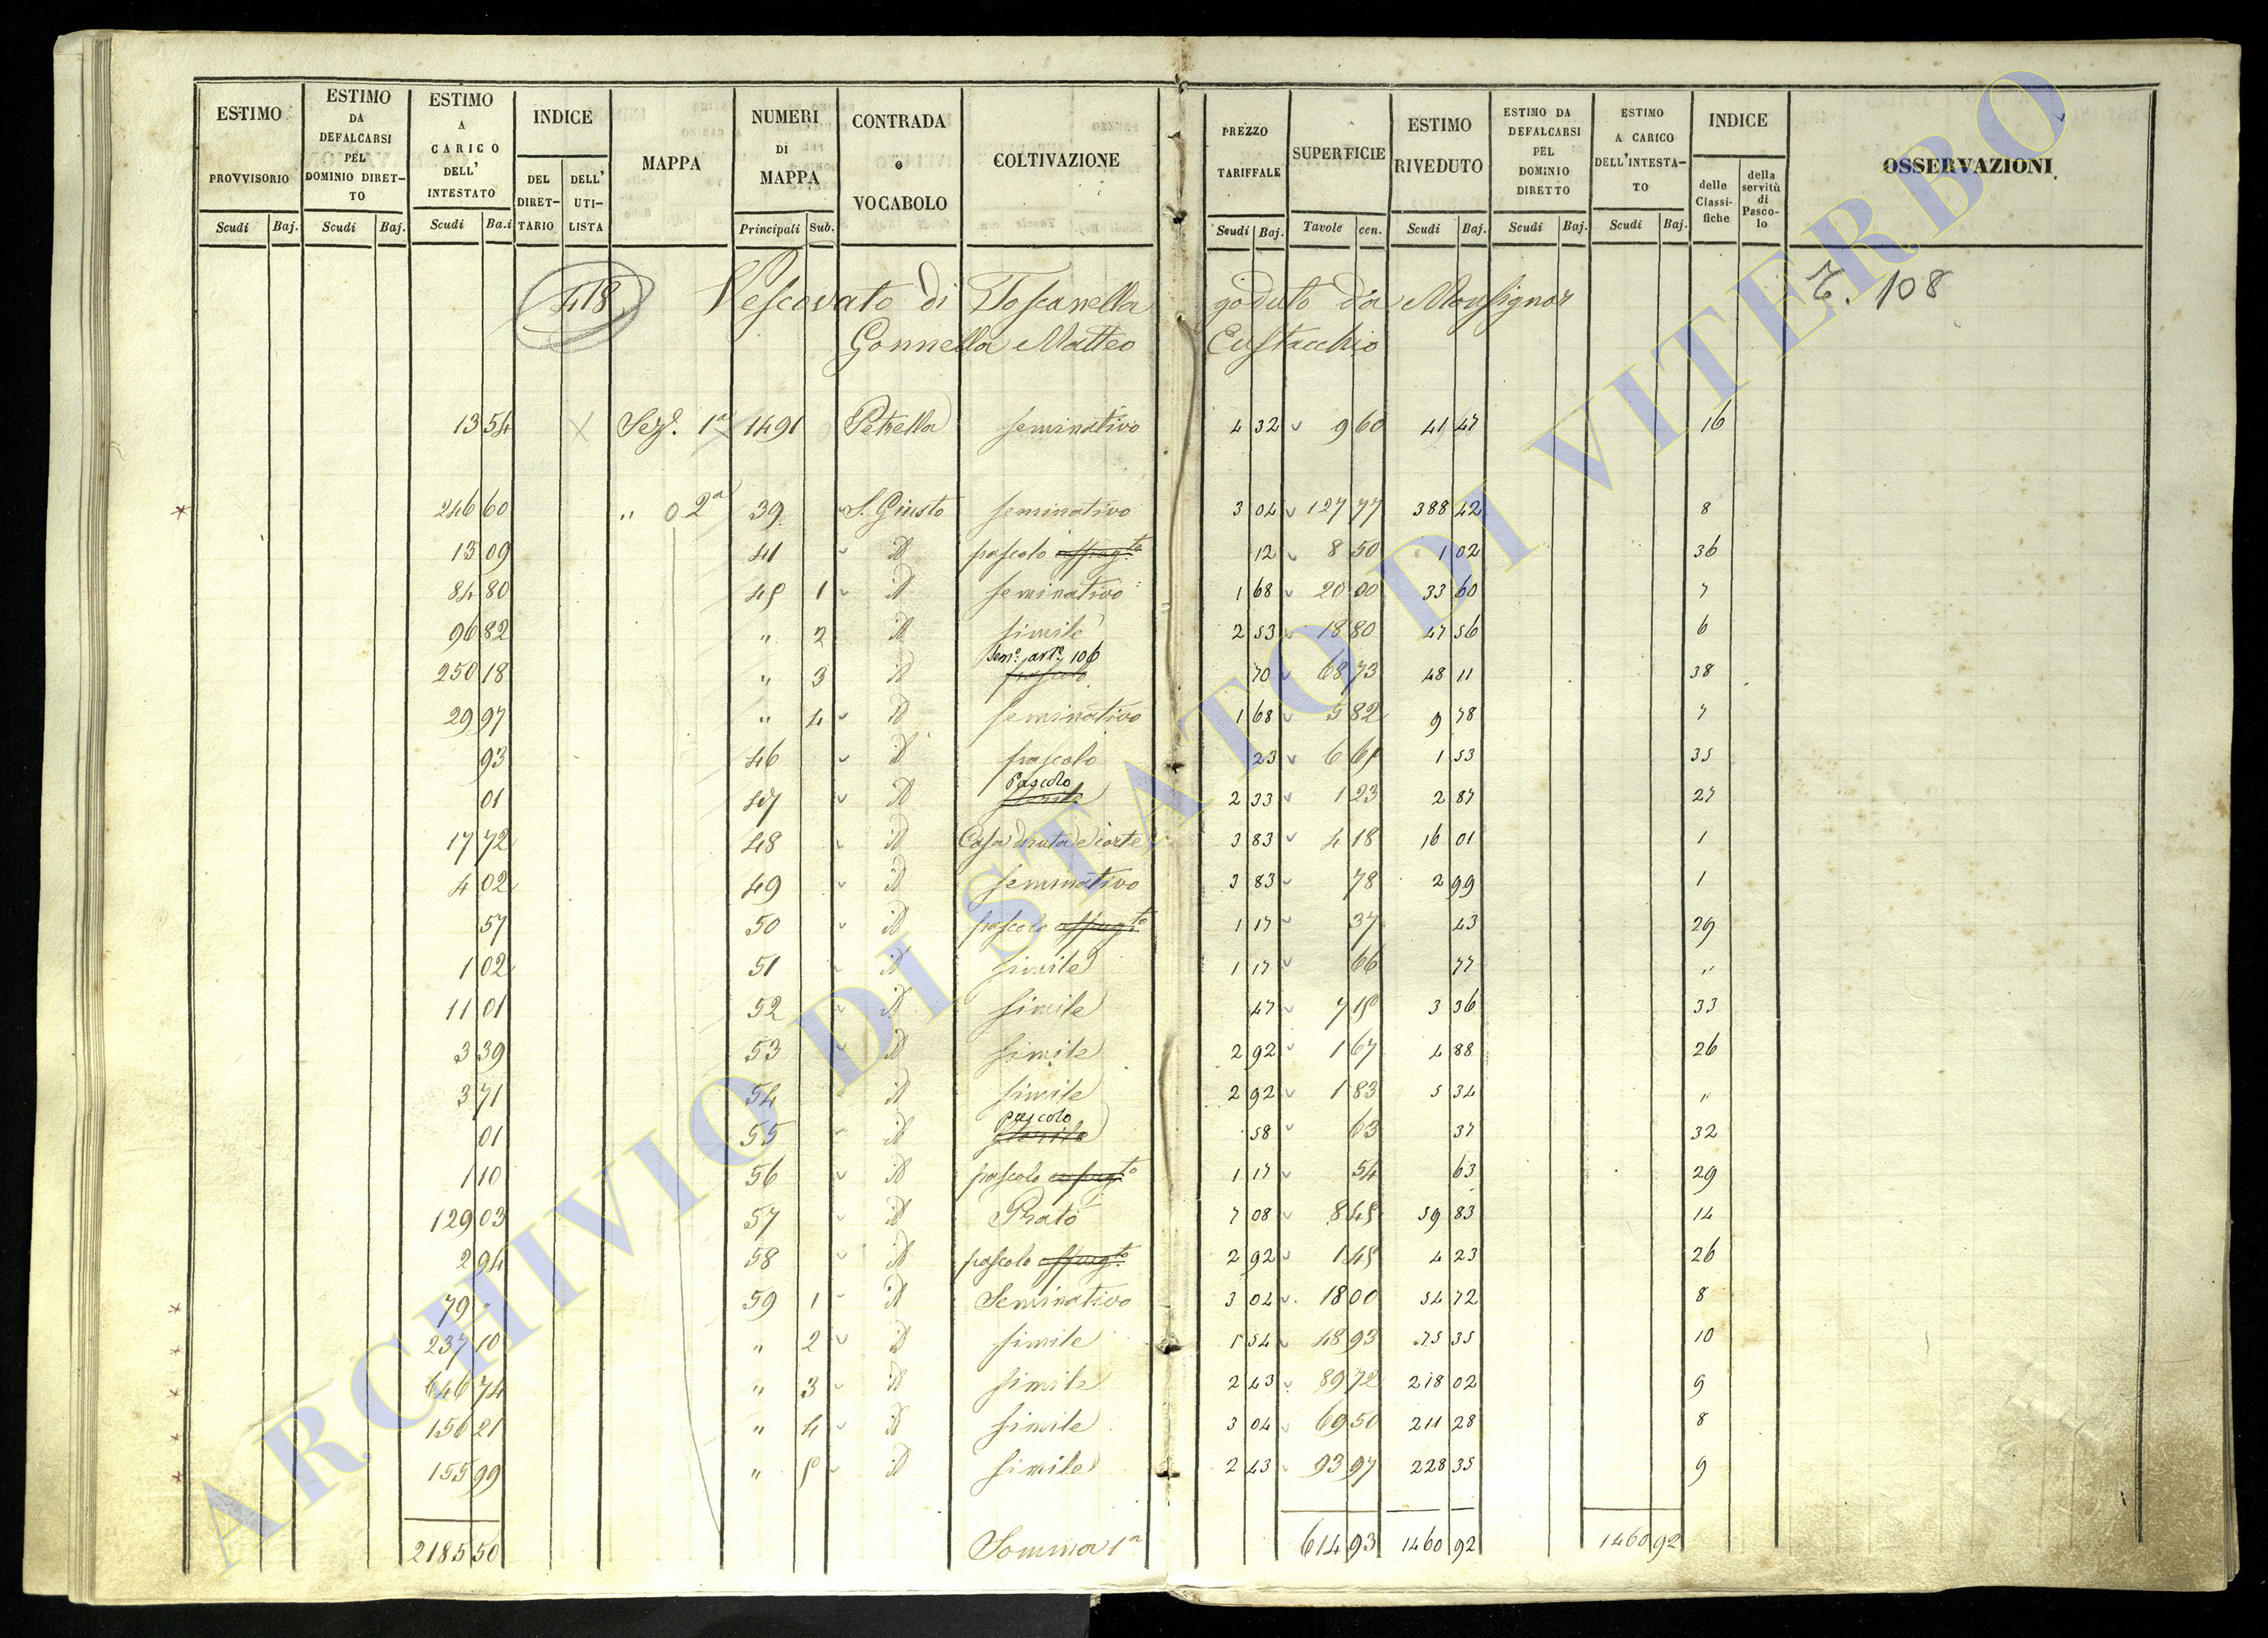 ESTIMO PROVVISORIO Scudi Baj. ESTIMO DA DEFALCARSI PEL DOMINIO DIRETTO Scudi Baj. ESTIMO A CARICO DELL' INTESTATO Scudi Ba.i INDICE DEL DIRETTARIO DELL' UTILISTA MAPPA NUMERI DI MAPPA Principali Sub. CONTRADA o VOCABOLO COLTIVAZIONE PREZZO TARIFFALE Scudi Baj. SUPERFICIE Tavole cen. ESTIMO RIVEDUTO Scudi Baj. ESTIMO DA DEFALCARSI PEL DOMINIO DIRETTO Scudi Baj. ESTIMO A CARICO DELL'INTESTATO Scudi Baj. INDICE delle Classifiche della servitù di Pascolo OSSERVAZIONI
418 Vescovato di Toscanella goduto da Monsignor T. 108
Gonnella Matteo Eustacchio
13 54 X Sez. 1a 1491 Petrella seminativo 4 32 9 60 41 47 16
* 246 60 " 0 2a 39 S. Giusto seminativo 3 04 127 77 388 42 8
13 09 41 id pascolo 12 8 50 1 02 36
84 80 45 1 id seminativo 1 68 20 00 33 60 7
96 82 " 2 id simile 2 53 18 80 47 56 6
Semo. arto. 106
250 18 " 3 id pascolo 70 68 73 48 11 38
29 97 " 4 id seminativo 1 68 5 82 9 78 7
93 46 id pascolo 23 6 65 1 53 35
Pascolo
01 47 id 2 33 1 23 2 87 27
17 72 48 id Casa diruta e corte 3 83 4 18 16 01 1
4 02 49 id seminativo 3 83 78 2 99 1
57 50 id pascolo 1 17 37 43 29
1 02 51 id simile 1 17 66 77 "
11 01 52 id simile 47 7 15 3 36 33
3 39 53 id simile 2 92 1 67 4 88 26
3 71 54 id simile 2 92 1 83 5 34 "
pascolo
01 55 id 58 63 37 32
1 10 56 id pascolo 1 17 54 63 29
129 03 57 id Prato 7 08 8 45 59 83 14
2 94 58 id pascolo 2 92 1 45 4 23 26
* 79 " 59 1 id Seminativo 3 04 18 00 54 72 8
* 237 10 " 2 id simile 1 54 48 93 75 35 10
* 646 74 " 3 id simile 2 43 89 72 218 02 9
* 156 21 " 4 id simile 3 04 69 50 211 28 8
* 155 99 " 5 id simile 2 43 93 97 228 35 9
2185 50 Somma 1a 614 93 1460 92 1460 92
ARCHIVIO DI STATO DI VITERBO